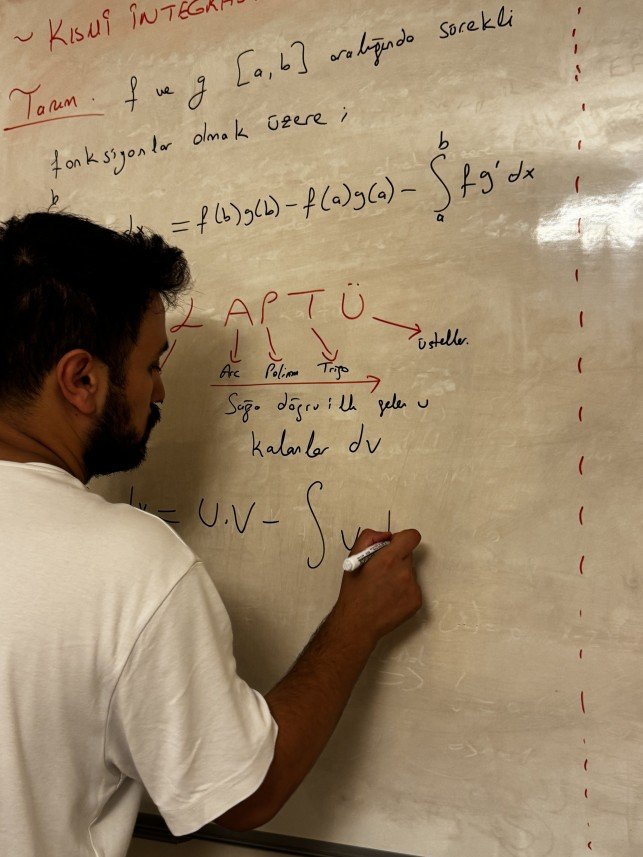 ~ KISMİ İNTEGRAS
Tanım. f ve g [a,b] aralığında sürekli
fonksiyonlar olmak üzere ;
b
dx = f(b)g(b) - f(a)g(a) - ∫ₐᵇ f g' dx
L A P T Ü
üsteller.
Arc Polinm Trigo
Sağa döğru ilk gelen u
kalanlar dv
dv = U.V - ∫ v